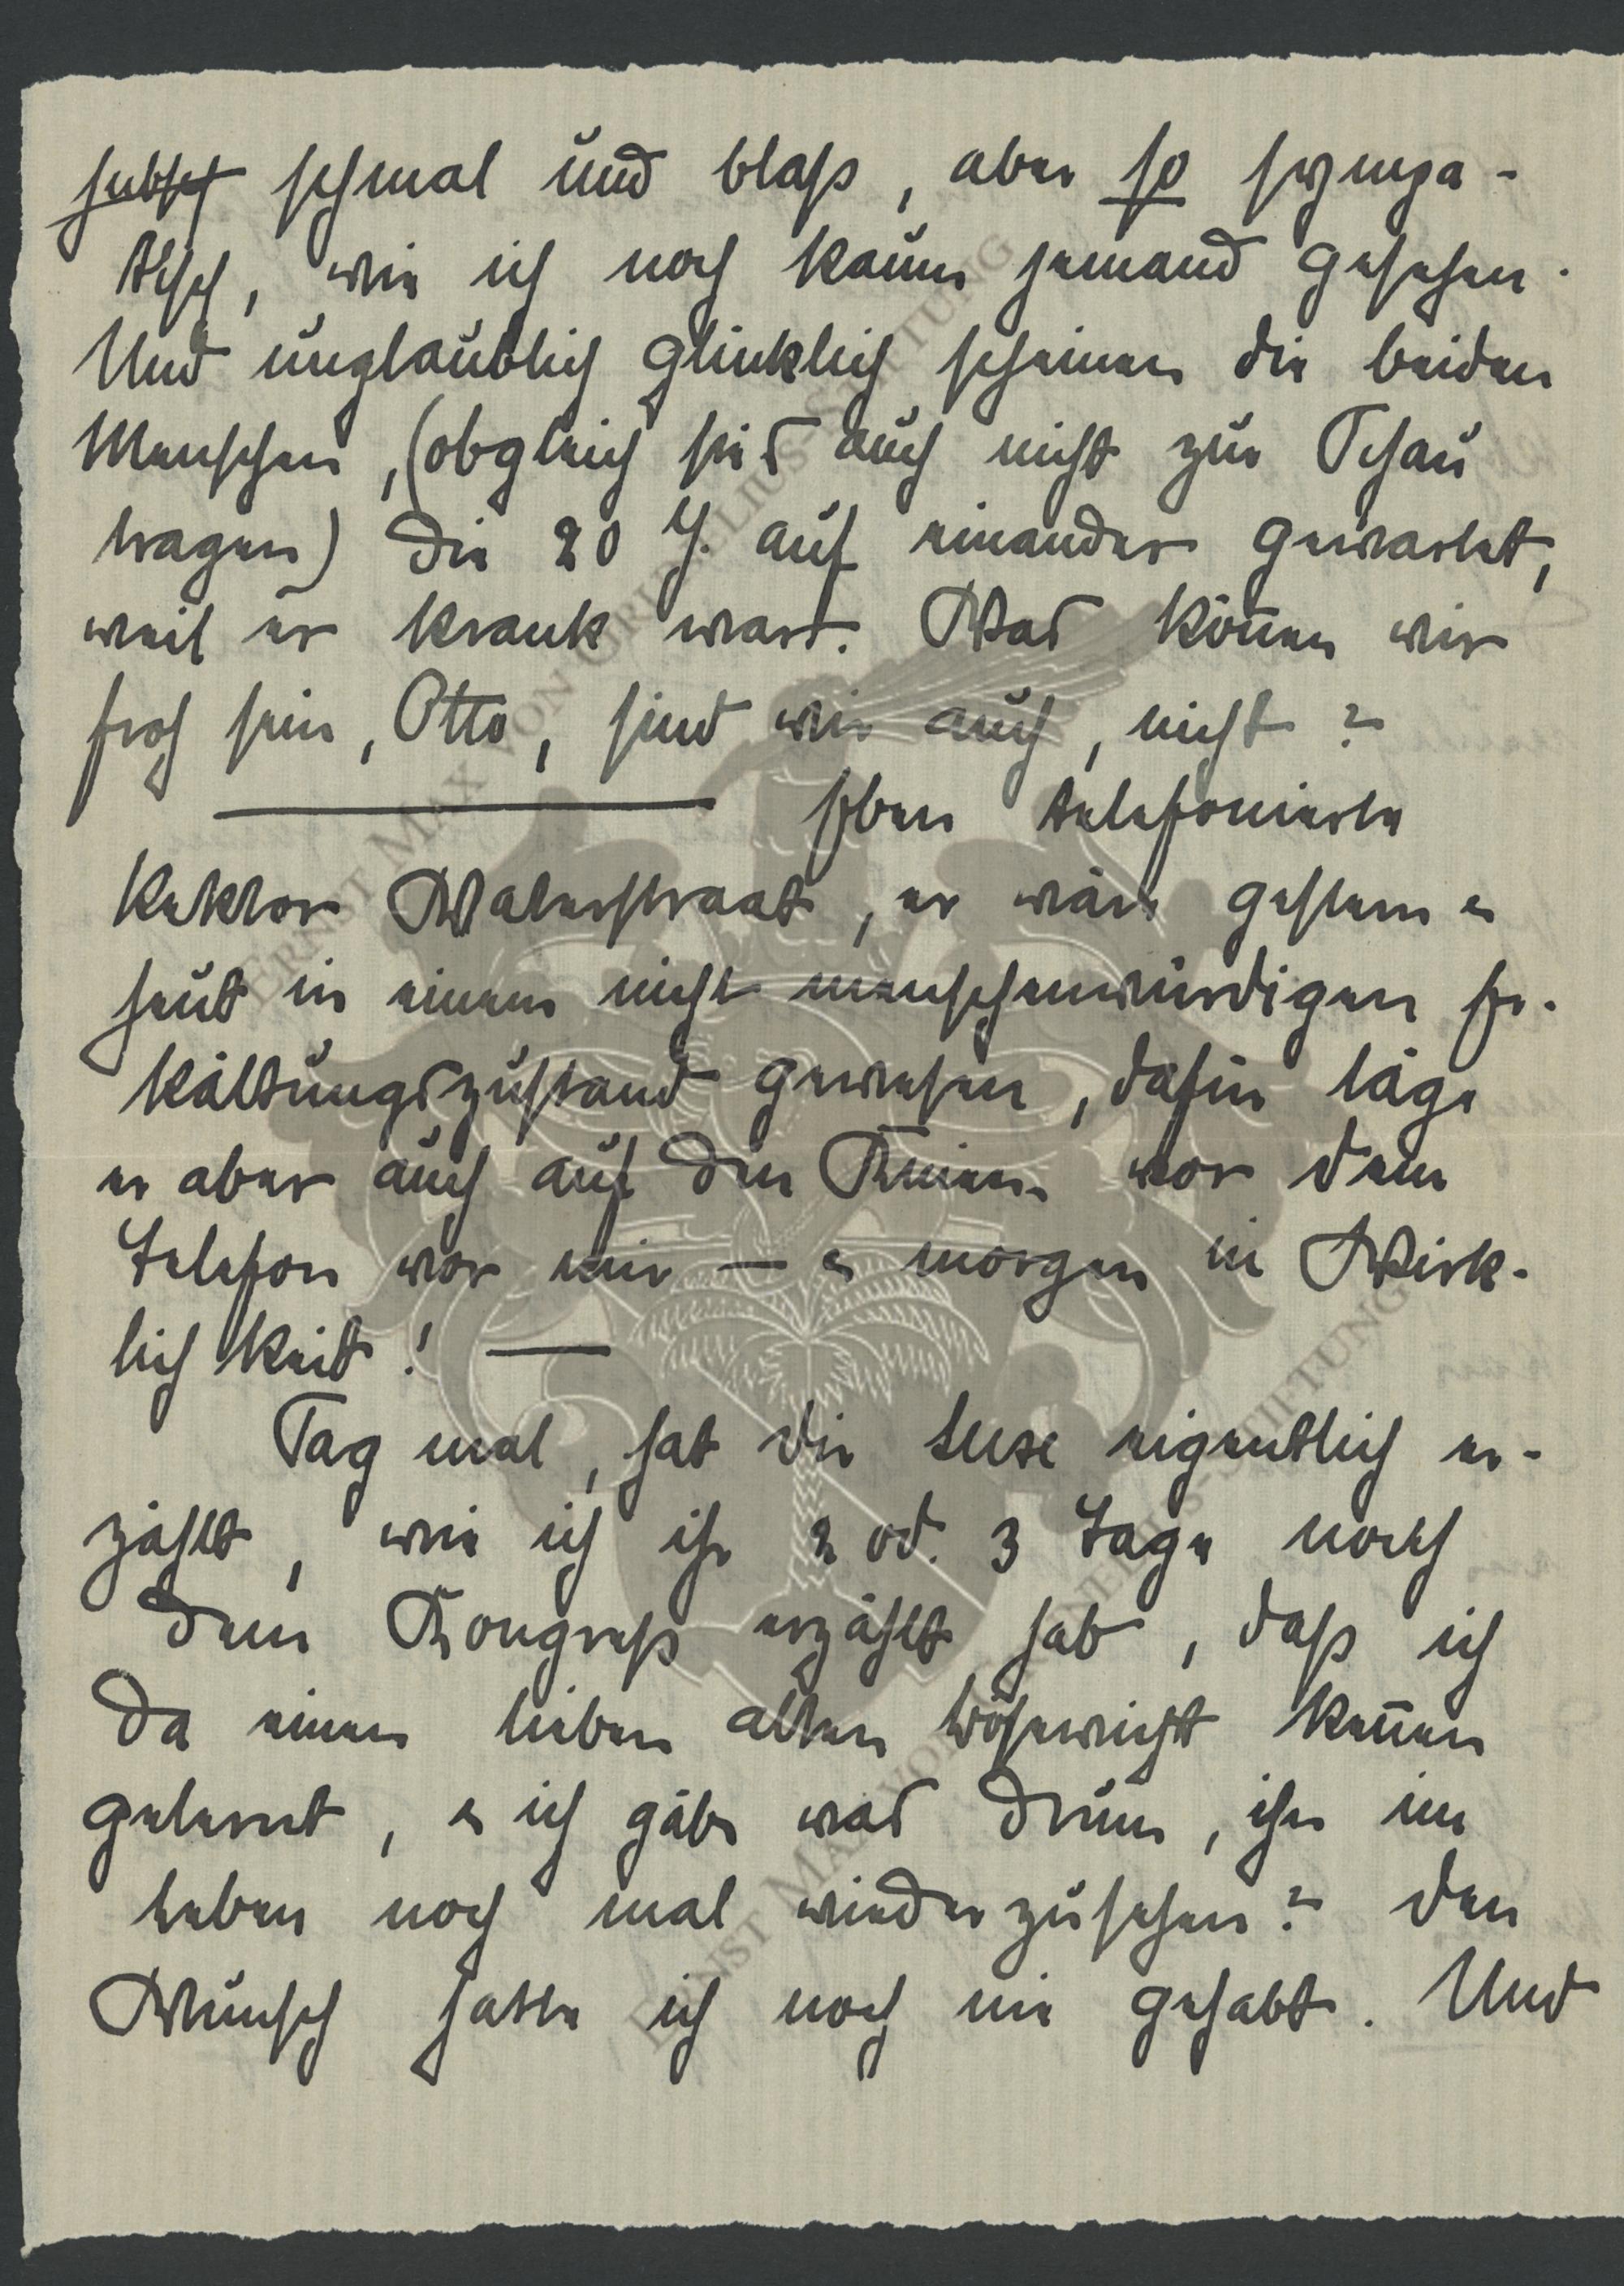 hübsch schmal und blaß, aber so sympa-
tisch, wie ich noch kaum jemand gesehen.
Und unglaublich glücklich scheinen die beiden
Menschen, (obgleich sie's auch nicht zur Schau
tragen) die 20 J. auf einander gewartet,
weil er krank war. Was können wir
froh sein, Otto, sind wir auch, nicht?
Eben telefonierte
Rektor Waterstraat, er wär gestern &
heut in einem nicht menschenwürdigen Er-
kältungszustand gewesen, dafür läge
er aber auch auf den Knieen vor dem
Telefon vor mir — & morgen in Wirk-
lichkeit! —
Sag mal, hat Dir Suse eigentlich er-
zählt, wie ich ihr 2 od. 3 Tage nach
dem Kongreß erzählt hab, daß ich
da einen lieben alten Bösewicht kennen
gelernt, & ich gäbe was drum, ihn im
Leben noch mal wiederzusehen? Den
Wunsch hatte ich noch nie gehabt. Und
ERNST MAX VON GRUNELIUS-STIFTUNG
ERNST MAX VON GRUNELIUS-STIFTUNG